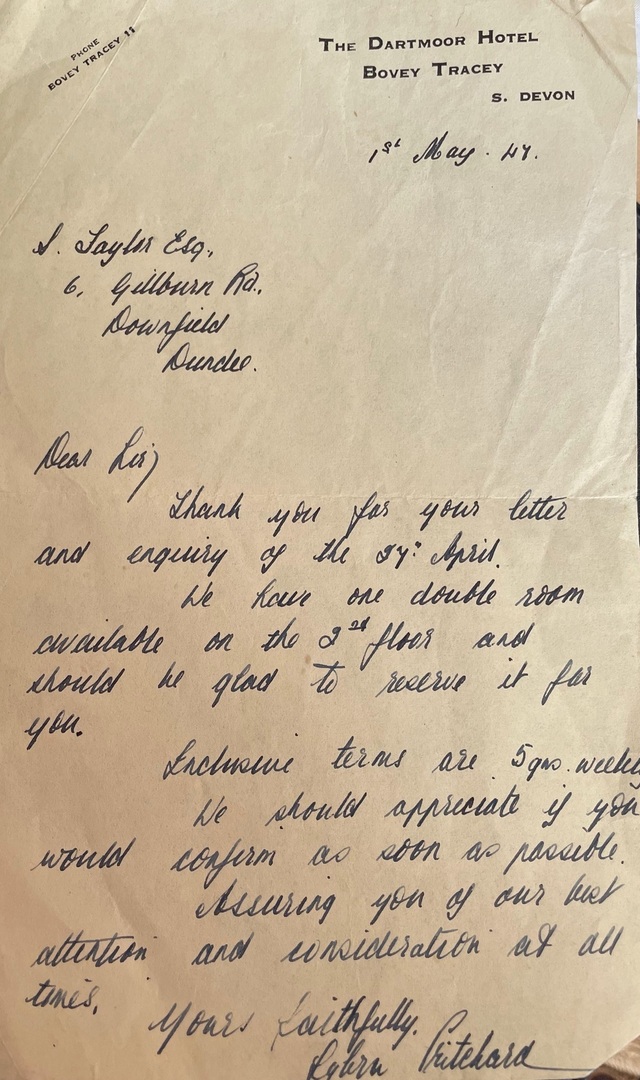 PHONE
BOVEY TRACEY 11
THE DARTMOOR HOTEL
BOVEY TRACEY
S. DEVON
1st May. 47.
S. Taylor Esq.,
6, Gillburn Rd.,
Downfield
Dundee.
Dear Sir,
Thank you for your letter
and enquiry of the 27th April.
We have one double room
available on the 2nd floor and
should be glad to reserve it for
you.
Inclusive terms are 5 gns. weekly
We should appreciate if you
would confirm as soon as possible.
Assuring you of our best
attention and consideration at all
times.
Yours faithfully.
Pritchard